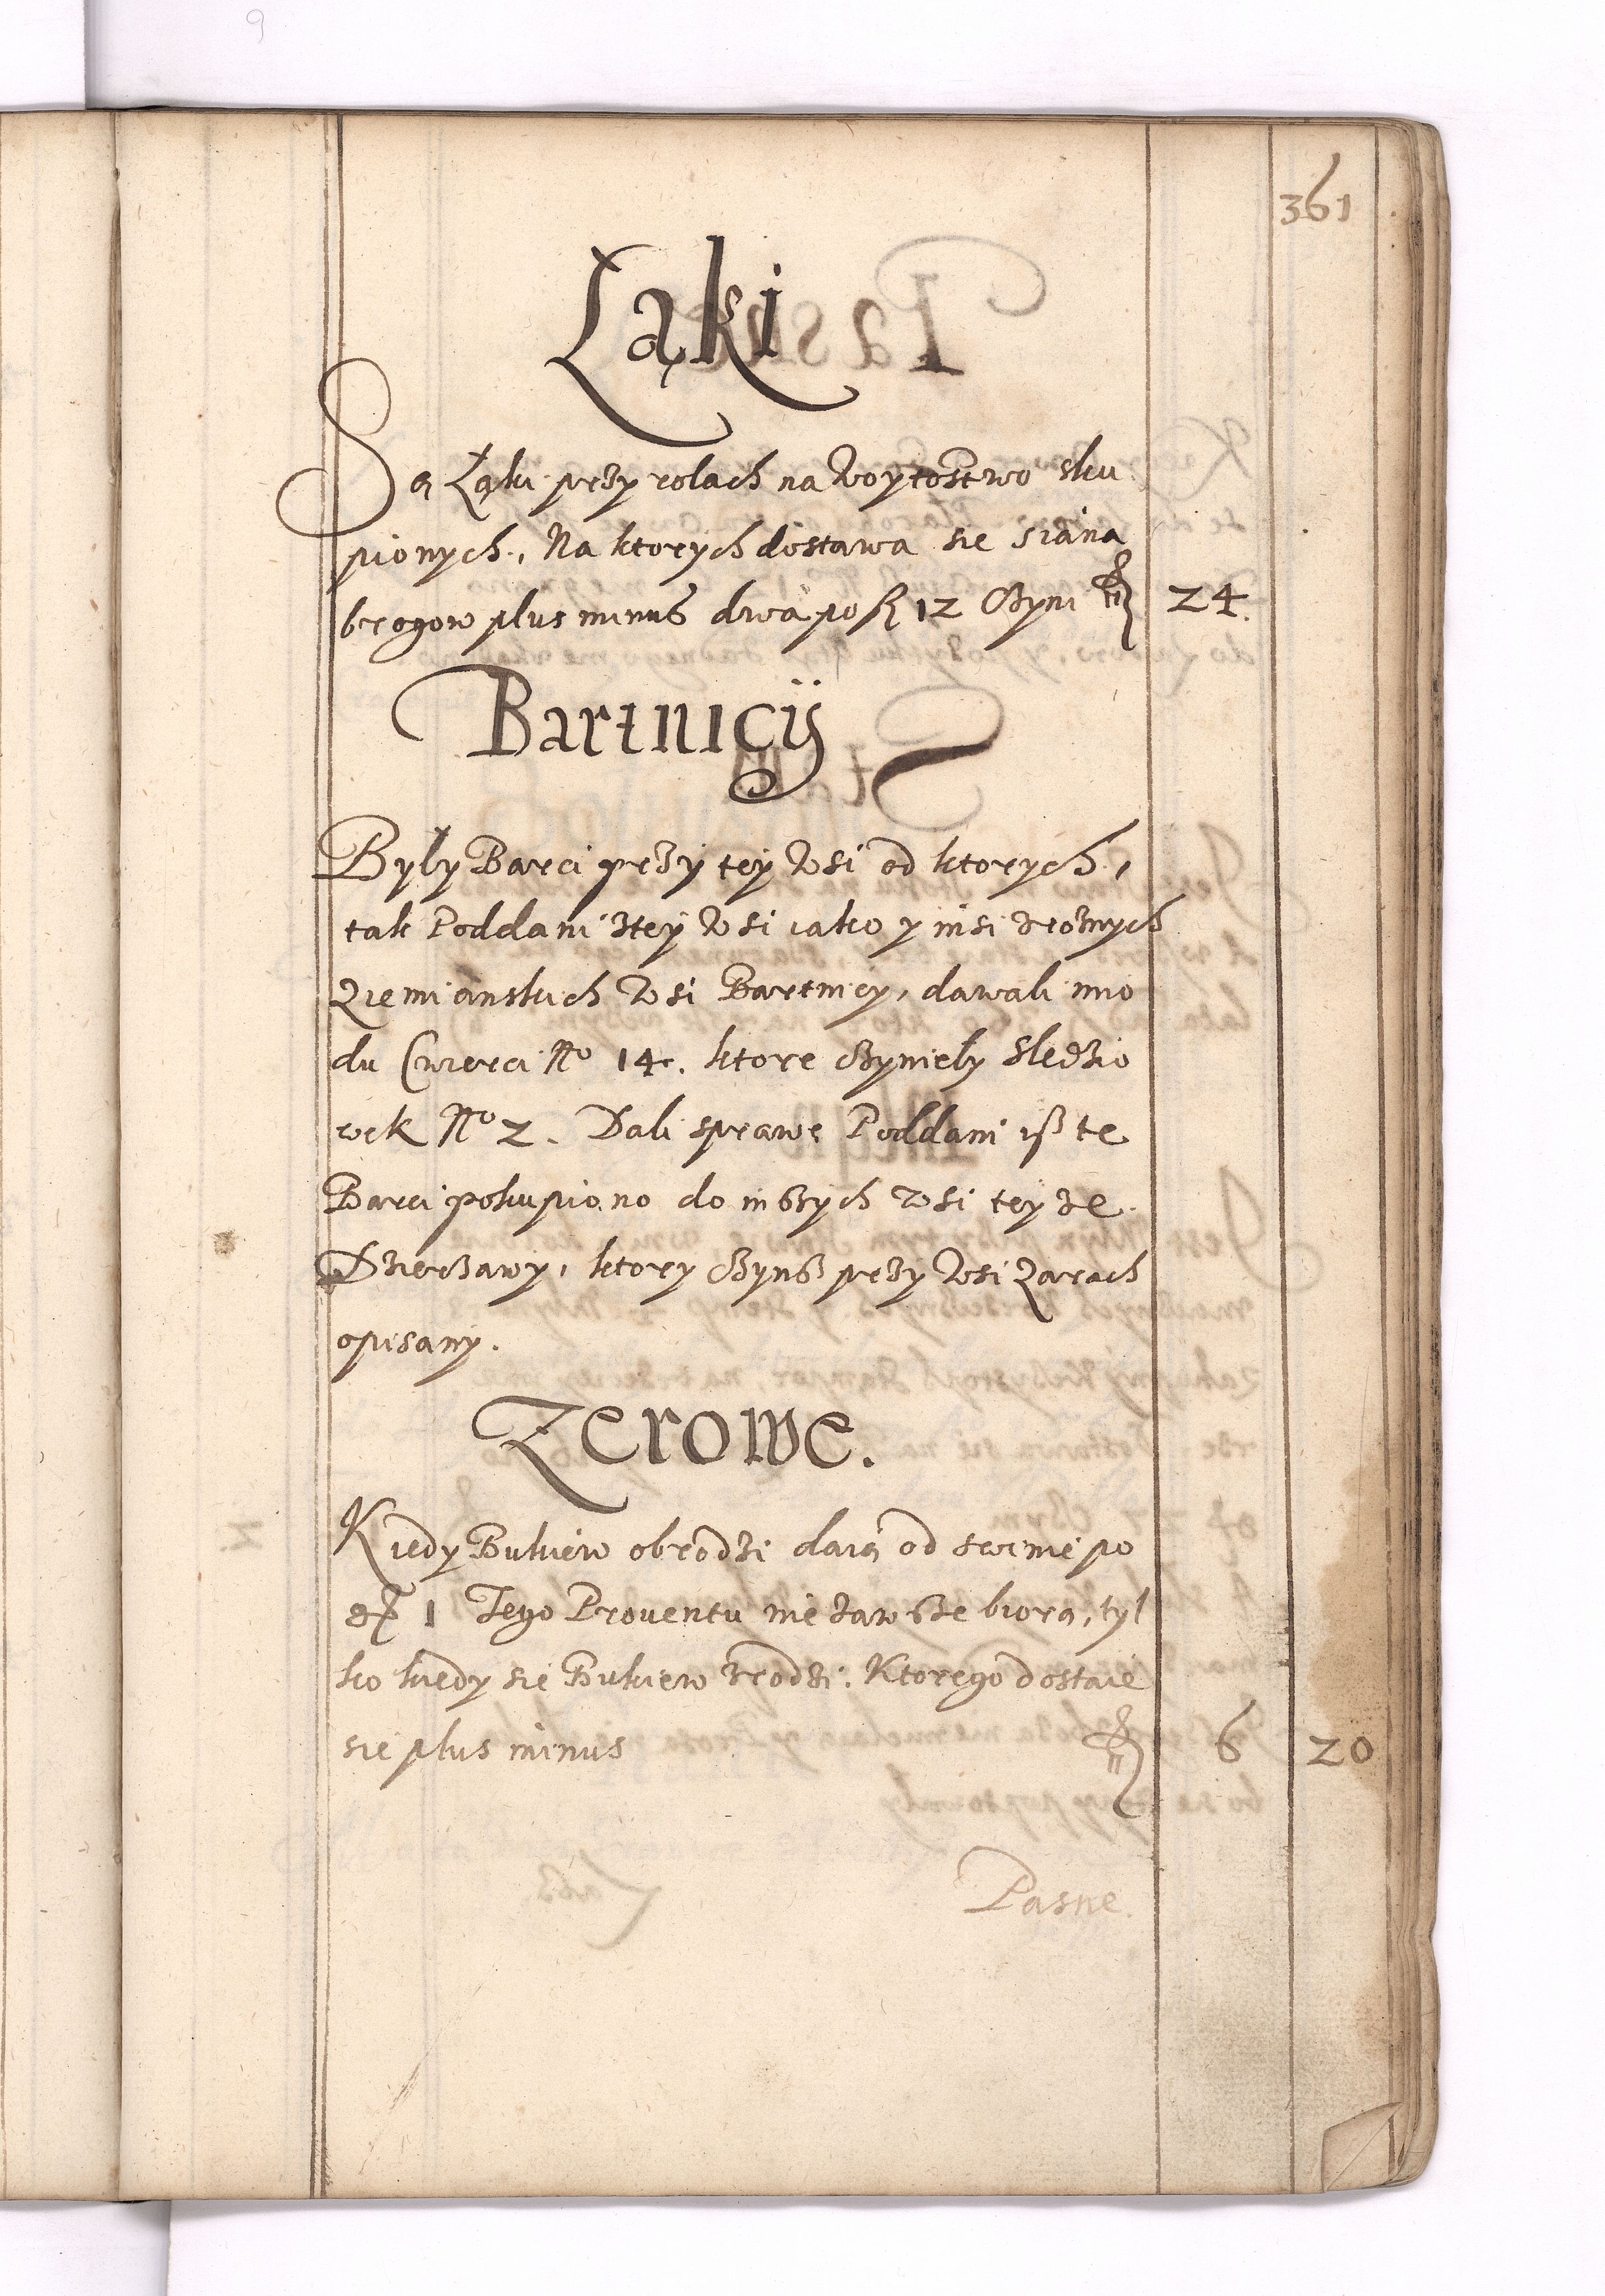 361
Łąki
Są Łąki przy rolach na Woytostwo sku
pionych, Na ktorych dostawa sie siana
brogow plus minus dwa po fl 12 Czyni fl 24.
Bartnicy
Były Barci przy tey Wsi od ktorych,
tak Poddani ztey Wsi iako y insi zroznych
Ziemianskich Wsi Bartnicy, dawali mio
du Cwierci No 14. ktore czyniely Sledzio
wek No 2. Dali sprawe Poddani isz te
Barci pokupiono do inszych Wsi teyze
Dzierzawy, ktory czynsz przy Wsi Zarach
opisany.
Zerowe.
Kiedy Bukiew obrodzi daią od swinie po
gr 1 Tego Prouentu nie zawsze biorą, tyl
ko kiedy sie Bukiew zrodzi: Ktorego dostaie
sie plus minus fl 6 20
Pasne.